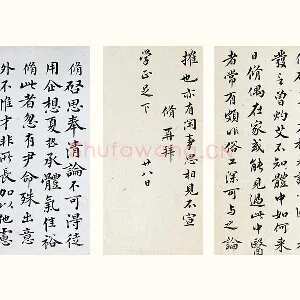 曾灼艾不知體中如何來
日脩偶在家或能見過此中醫
者常有頗非俗工深可與之論
榷也亦有閑事思相見不宣
脩再拜 廿八日
学正足下
脩啓思奉清論不可得徒
用企想夏熱承體氣佳裕
脩此者忽有尹命殊出意
外不惟才非所長加以他慮